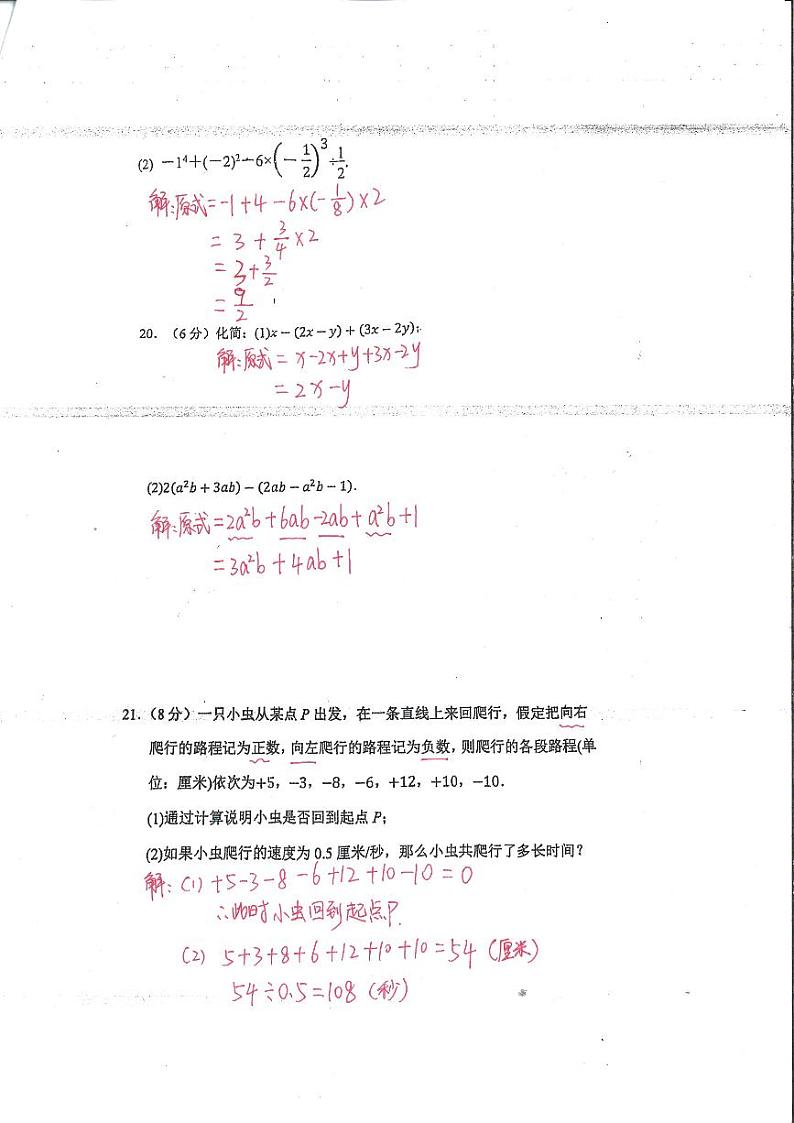 (2) −1⁴+(−2)²−6×(−1/2)³÷1/2.
解:原式=-1+4-6×(-1/8)×2
=3+3/4×2
=3+3/2
=9/2
20. (6分)化简: (1)x−(2x−y)+(3x−2y);
解:原式=x-2x+y+3x-2y
=2x-y
(2)2(a²b+3ab)−(2ab−a²b−1).
解:原式=2a²b+6ab-2ab+a²b+1
=3a²b+4ab+1
21. (8分)一只小虫从某点P出发，在一条直线上来回爬行，假定把向右
爬行的路程记为正数，向左爬行的路程记为负数，则爬行的各段路程(单
位：厘米)依次为+5，−3，−8，−6，+12，+10，−10．
(1)通过计算说明小虫是否回到起点P；
(2)如果小虫爬行的速度为0.5厘米/秒，那么小虫共爬行了多长时间？
解:(1)+5-3-8-6+12+10-10=0
∴此时小虫回到起点P.
(2) 5+3+8+6+12+10+10=54 (厘米)
54÷0.5=108 (秒)